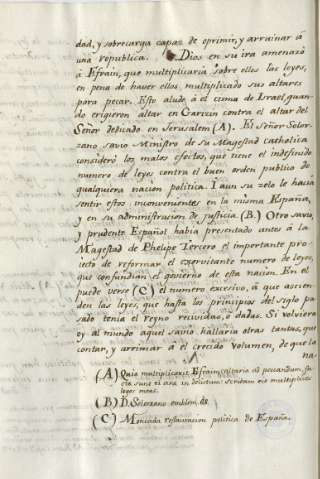 dad, y sobrecarga capaz de oprimir, y arruinar á
una republica. Dios en su ira amenazó
á Efrain, que multiplicaria sobre ellos las leyes,
en pena de haver ellos multiplicado sus altares
para pecar. Esto alude á el cisma de Israel, quan-
do erigieron altar en Garizin contra el altar del
Señor dedicado en Jerusalem (A). El Señor Solor-
zano savio Ministro de su Magestad catholica
consideró los malos efectos, que tiene el indefinido
numero de leyes contra el buen orden publico de
qualquiera nacion politica. I aun su zelo le hacia
sentir estos inconvenientes en la misma España,
y en su administracion de justicia (B.) Otro savio,
y prudente Español havia presentado antes á la
Magestad de Phelipe Tercero el importante pro-
iecto de reformar el exorvitante numero de leyes,
que confundian el govierno de esta nacion. En el
puede verse (C) el numero excesivo, á que ascien-
den las leyes, que hasta los principios del siglo pa-
sado tenia el reyno recividas, ó dadas. Si volviera
oy al mundo aquel savio hallaria otras tantas, que
contar, y arrimar á el crecido volumen, de que la
na-
(A) Quia multiplicavit Efrain altaria ad peccandum, fac-
ta sunt ei arae in delictum: scribam eis multiplices
leges meas.
(B) D. Solorzano emblem. 68.
(C) Moncada restauracion politica de España.